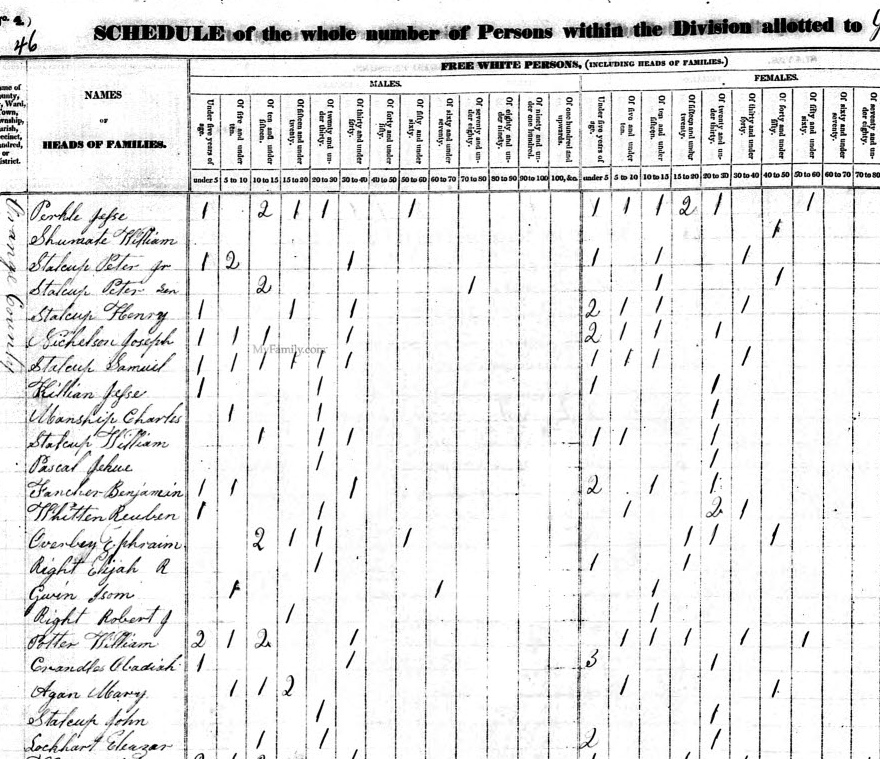 o. 4.)
46
SCHEDULE of the whole number of Persons within the Division allotted to
FREE WHITE PERSONS, (INCLUDING HEADS OF FAMILIES.)
MALES. FEMALES.
NAMES
OF
HEADS OF FAMILIES.
Under five years of age. Of five and under ten. Of ten and under fifteen. Of fifteen and under twenty. Of twenty and under thirty. Of thirty and under forty. Of forty and under fifty. Of fifty and under sixty. Of sixty and under seventy. Of seventy and under eighty. Of eighty and under ninety. Of ninety and under one hundred. Of one hundred and upwards. Under five years of age. Of five and under ten. Of ten and under fifteen. Of fifteen and under twenty. Of twenty and under thirty. Of thirty and under forty. Of forty and under fifty. Of fifty and under sixty. Of sixty and under seventy. Of seventy and under eighty.
under 5 5 to 10 10 to 15 15 to 20 20 to 30 30 to 40 40 to 50 50 to 60 60 to 70 70 to 80 80 to 90 90 to 100 100, &c. under 5 5 to 10 10 to 15 15 to 20 20 to 30 30 to 40 40 to 50 50 to 60 60 to 70 70 to 80
Orange County
Perkle Jesse 1 2 1 1 1 1 1 1 2 1 1
Shumate William 1
Stalcup Peter Jr 1 2 1 1 1 1
Stalcup Peter Sen 2 1 1 1
Stalcup Henry 1 1 1 2 1 1 1
Nichelson Joseph 1 1 1 1 2 1 1 1
MyFamily.com
Stalcup Samuel 1 1 1 1 1 1 1 1 1 1
Killian Jesse 1 1 1 1
Manship Charles 1 1 1
Stalcup William 1 1 1 1 1 1
Pascal Jehue 1 1
Fancher Benjamin 1 1 1 2 1 1
Whitten Reuben 1 1 1 2 1
Overbey Ephraim 2 1 1 1 1 1 1
Right Elijah R 1 1 1
Gwin Isom 1 1 1
Right Robert J 1 1
Potter William 2 1 2 1 1 1 1 1 1
Crandles Obadiah 1 1 3 1
Agan Mary 1 1 2 1 1
Stalcup John 1 1
Lockhart Eleazar 1 1 2 1